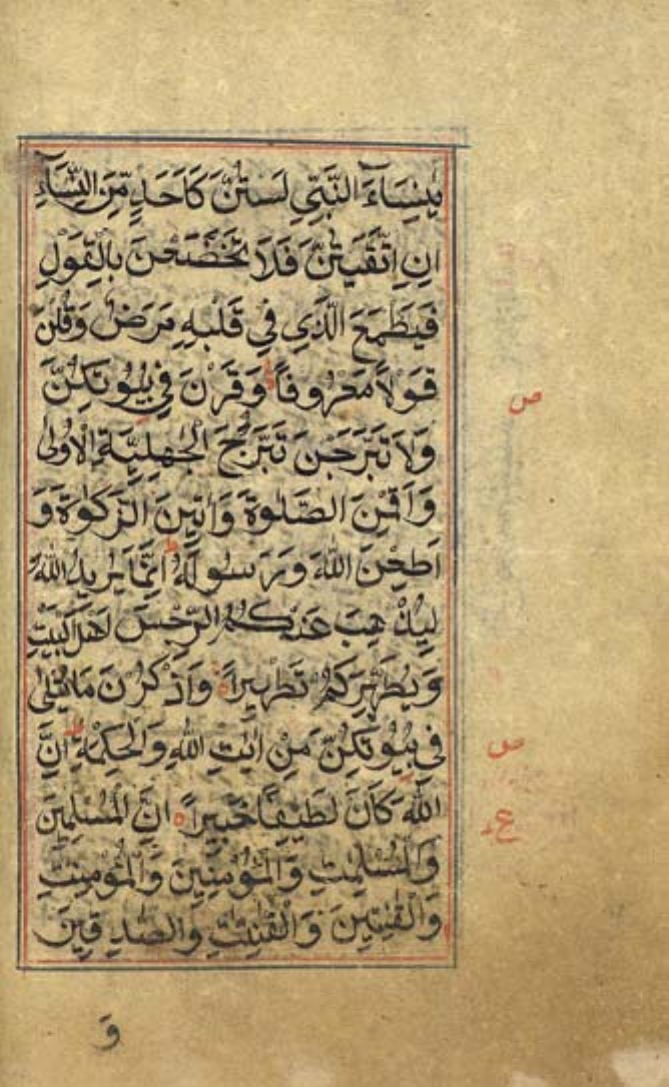 يٰنِسَآءَ النَّبِيِّ لَسْتُنَّ كَاَحَدٍ مِّنَ النِّسَآءِ
اِنِ اتَّقَيْتُنَّ فَلَا تَخْضَعْنَ بِالْقَوْلِ
فَيَطْمَعَ الَّذِي فِي قَلْبِهِ مَرَضٌ وَقُلْنَ
قَوْلًا مَعْرُوفًا ط وَقَرْنَ فِي بُيُوتِكُنَّ
ص
وَلَا تَبَرَّجْنَ تَبَرُّجَ الْجٰهِلِيَّةِ الْاُولٰى
وَاَقِمْنَ الصَّلٰوةَ وَاٰتِينَ الزَّكٰوةَ وَ
اَطِعْنَ اللّٰهَ وَرَسُولَهُ ط اِنَّمَا يُرِيدُ اللّٰهُ
لِيُذْهِبَ عَنْكُمُ الرِّجْسَ اَهْلَ الْبَيْتِ
وَيُطَهِّرَكُمْ تَطْهِيرًا وَاذْكُرْنَ مَا يُتْلٰى
فِي بُيُوتِكُنَّ مِنْ اٰيٰتِ اللّٰهِ وَالْحِكْمَةِ ط اِنَّ
ص
اللّٰهَ كَانَ لَطِيفًا خَبِيرًا اِنَّ الْمُسْلِمِينَ
ع
وَالْمُسْلِمٰتِ وَالْمُؤْمِنِينَ وَالْمُؤْمِنٰتِ
وَالْقٰنِتِينَ وَالْقٰنِتٰتِ وَالصّٰدِقِينَ
وَ